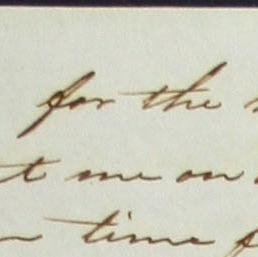 for the
me on
time